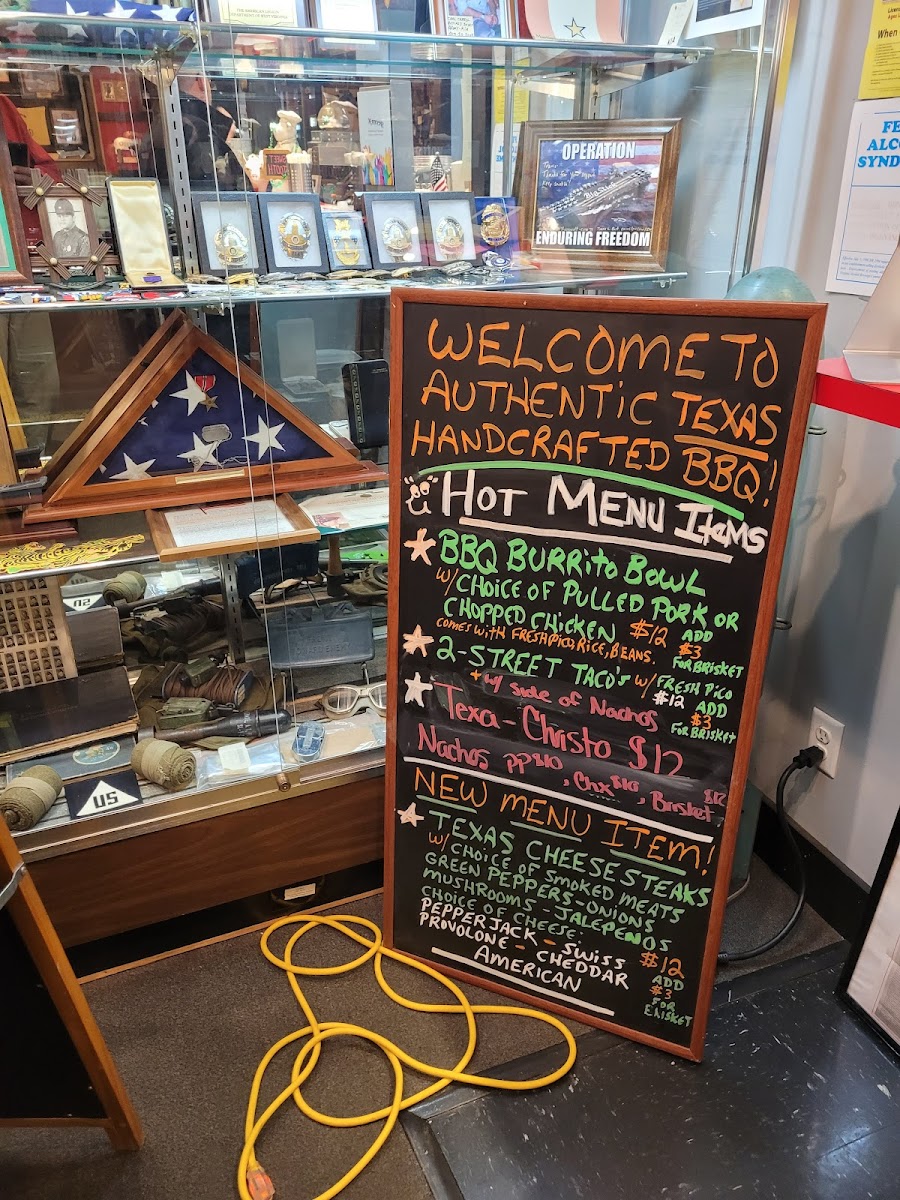 OPERATION
ENDURING FREEDOM
US
WELCOME TO
AUTHENTIC TEXAS
HANDCRAFTED BBQ!
HOT MENU ITEMS
BBQ BURRITO BOWL
W/ CHOICE OF PULLED PORK OR
CHOPPED CHICKEN $12 ADD
COMES WITH FRESH PICO, RICE, BEANS. $3
FOR BRISKET
2-STREET TACO'S W/ FRESH PICO
+ w/ Side of Nachos $12 ADD
$3
FOR BRISKET
Texa-Christo $12
Nachos PP$10, Chx $10, Brisket $12
NEW MENU ITEM!
TEXAS CHEESE STEAKS
W/ CHOICE OF SMOKED MEATS
GREEN PEPPERS-ONIONS
MUSHROOMS-JALEPENOS
CHOICE OF CHEESE:
PEPPERJACK - SWISS $12
PROVOLONE - CHEDDAR ADD
AMERICAN $3
FOR
BRISKET
When